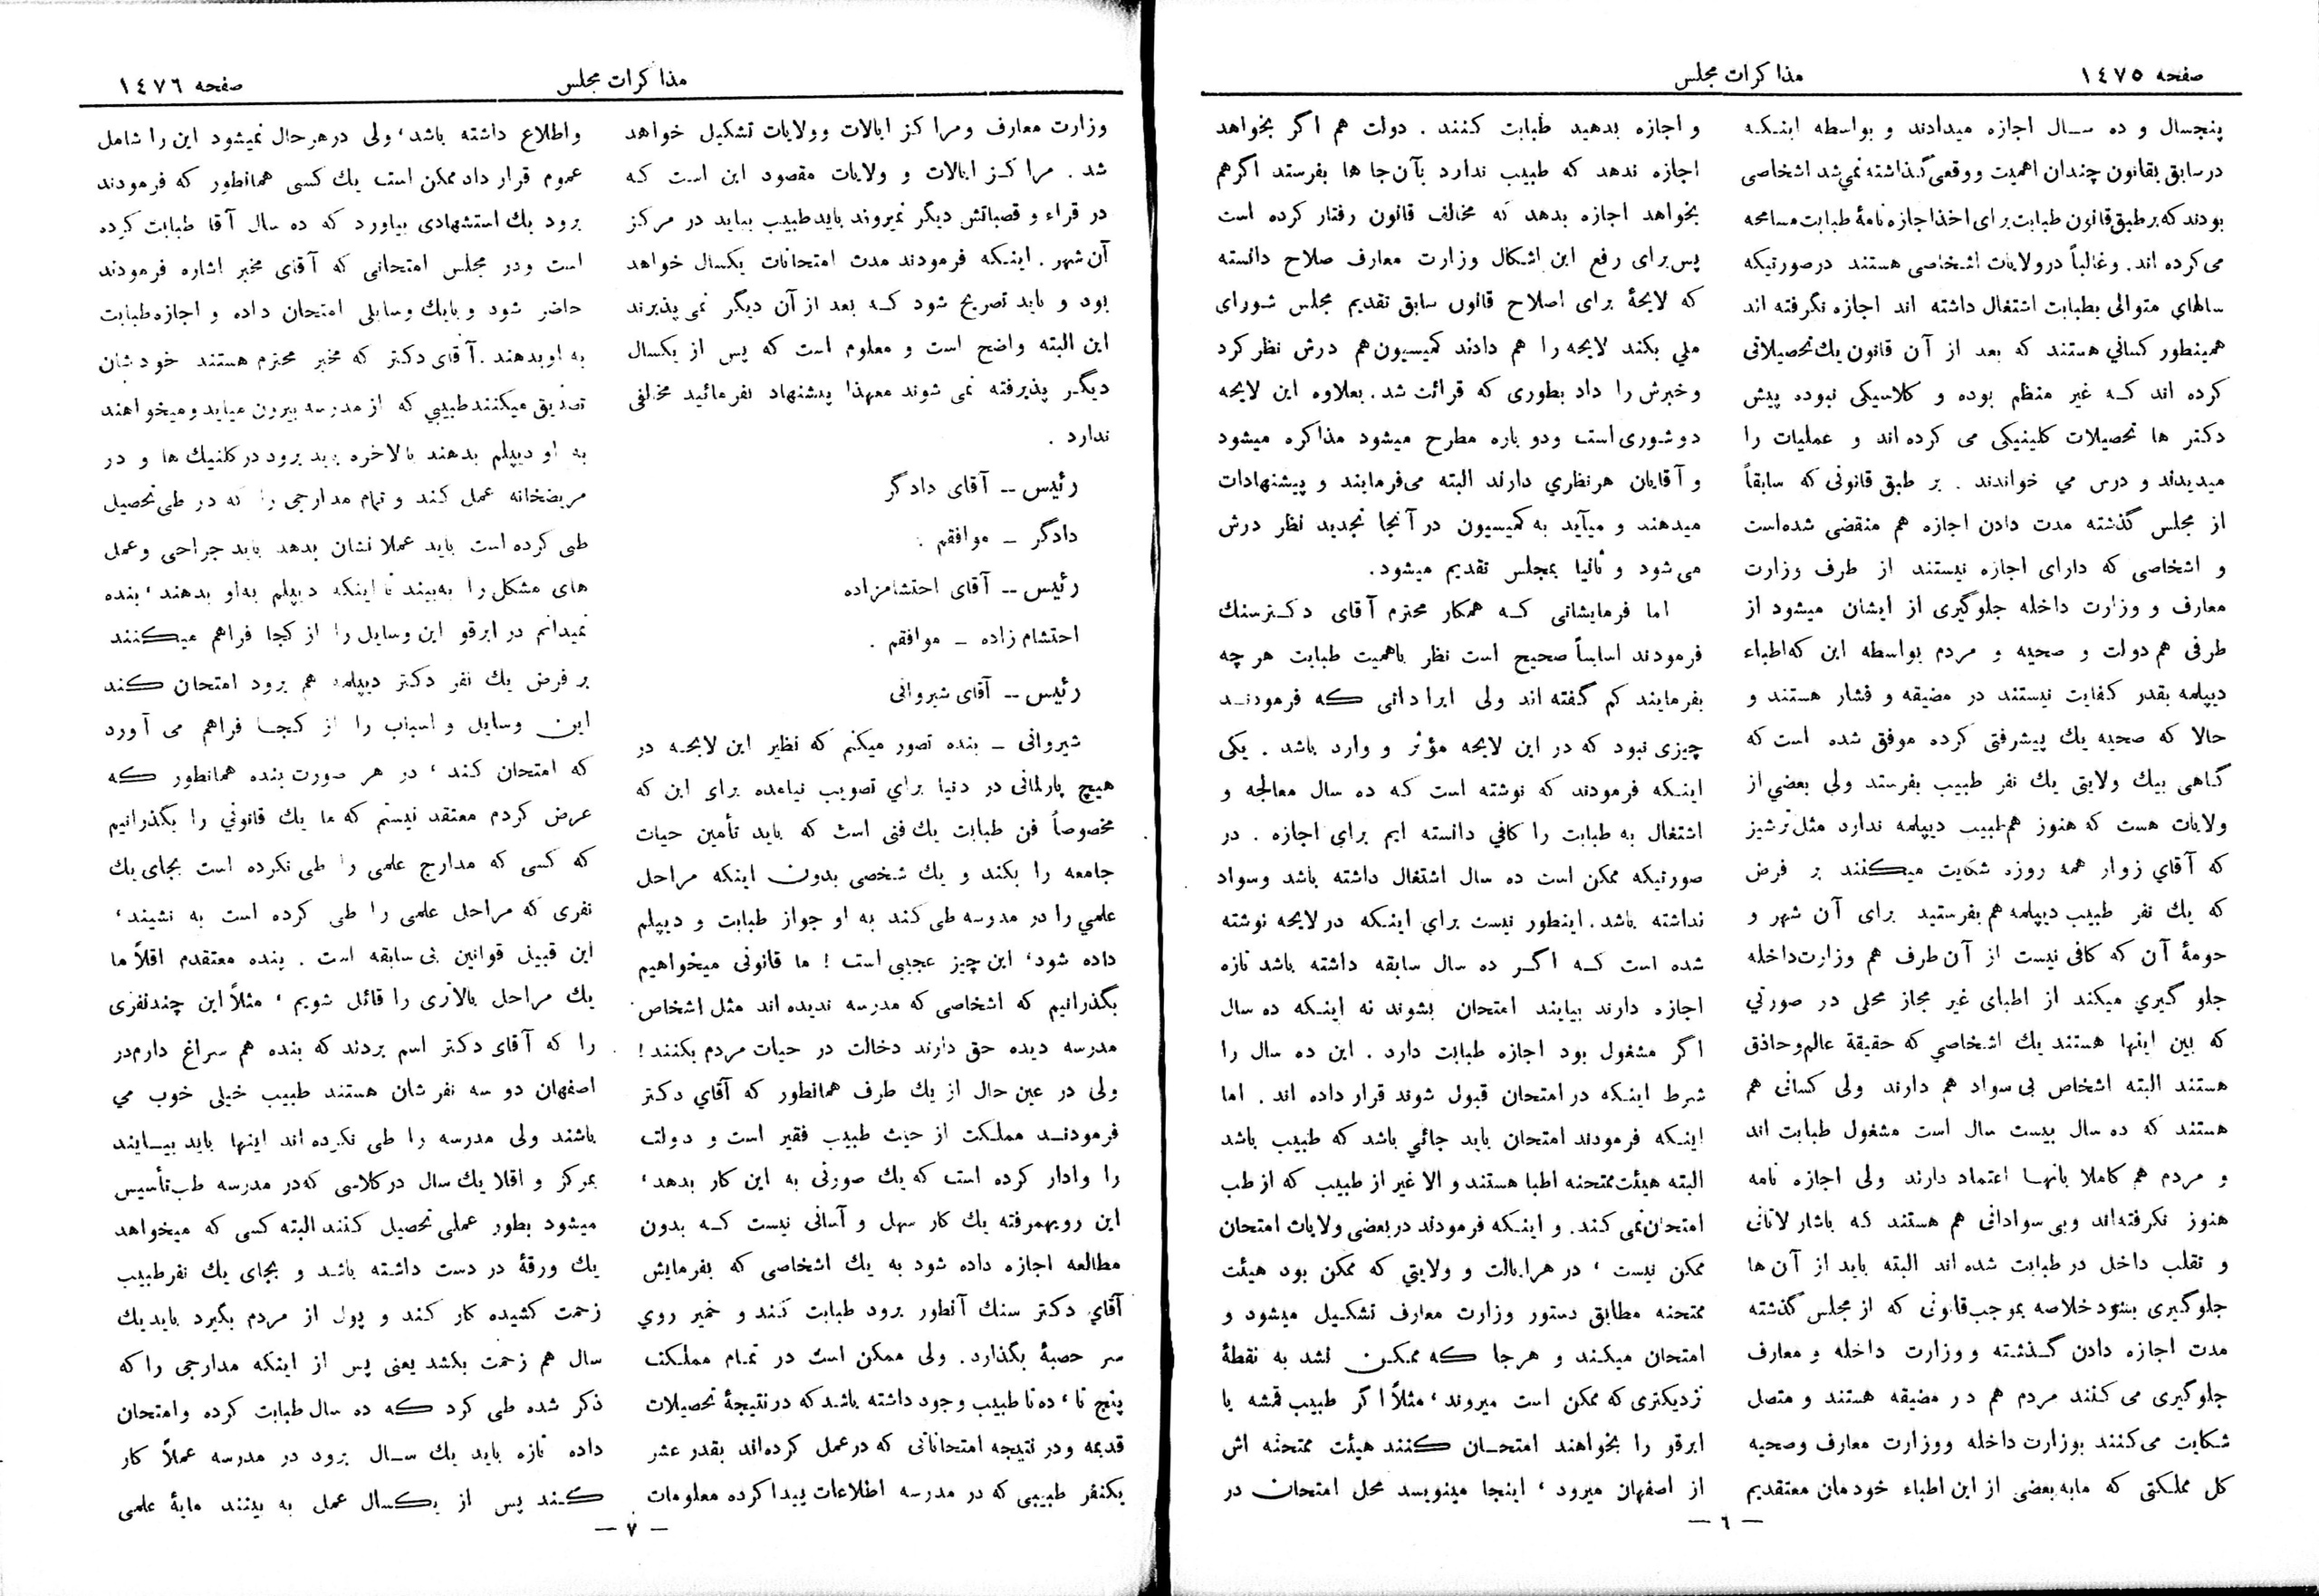 صفحه ١٤٧٥
مذاکرات مجلس
پنجسال و ده سال اجازه میدادند و بواسطه اینکه
درسابق بقانون چندان اهمیت ووقعی گذاشته نمی‌شد اشخاصی
بودند که برطبق قانون طبابت برای اخذ اجازه نامهٔ طبابت مسامحه
می‌کرده اند. وغالباً درولایات اشخاصی هستند درصورتیکه
سالهای متوالی بطبابت اشتغال داشته اند اجازه نگرفته اند
همینطور کسانی هستند که بعد از آن قانون یك تحصیلاتی
کرده اند که غیر منظم بوده و کلاسیکی نبوده پیش
دکتر ها تحصیلات کلینیکی می کرده اند و عملیات را
میدیدند و درس می خواندند . بر طبق قانونی که سابقاً
از مجلس گذشته مدت دادن اجازه هم منقضی شده‌است
و اشخاصی که دارای اجازه نیستند از طرف وزارت
معارف و وزارت داخله جلوگیری از ایشان میشود از
طرفی هم دولت و صحیه و مردم بواسطه این که اطباء
دیپلمه بقدر کفایت نیستند در مضیقه و فشار هستند و
حالا که صحیه یك پیشرفتی کرده موفق شده است که
گاهی بیك ولایتی یك نفر طبیب بفرستد ولی بعضی از
ولایات هست که هنوز هم طبیب دیپلمه ندارد مثل ترشیز
که آقای زوار همه روزه شکایت میکنند بر فرض
که یك نفر طبیب دیپلمه هم بفرستید برای آن شهر و
حومهٔ آن که کافی نیست از آن طرف هم وزارت داخله
جلو گیری میکند از اطبای غیر مجاز محلی در صورتی
که بین اینها هستند یك اشخاصی که حقیقة عالم وحاذق
هستند البته اشخاص بی سواد هم دارند ولی کسانی هم
هستند که ده سال بیست سال است مشغول طبابت اند
و مردم هم کاملا بانها اعتماد دارند ولی اجازه نامه
هنوز نگرفته‌اند وبی سوادانی هم هستند که باشارلاتانی
و تقلب داخل در طبابت شده اند البته باید از آن ها
جلوگیری بشود خلاصه بموجب قانونی که از مجلس گذشته
مدت اجازه دادن گذشته و وزارت داخله و معارف
جلوگیری می کنند مردم هم در مضیقه هستند و متصل
شکایت می‌کنند بوزارت داخله ووزارت معارف وصحیه
کل مملکتی که مابه بعضی از این اطباء خودمان معتقدیم
و اجازه بدهید طبابت کنند . دولت هم اگر بخواهد
اجازه ندهد که طبیب ندارد بآن جا ها بفرستد اگرهم
بخواهد اجازه بدهد که مخالف قانون رفتار کرده است
پس برای رفع این اشکال وزارت معارف صلاح دانسته
که لایحهٔ برای اصلاح قانون سابق تقدیم مجلس شورای
ملی بکند لایحه را هم دادند کمیسیون هم درش نظر کرد
وخبرش را داد بطوری که قرائت شد. بعلاوه این لایحه
دو شوری است ودو باره مطرح میشود مذاکره میشود
و آقایان هرنظری دارند البته می‌فرمایند و پیشنهادات
میدهند و میآید به کمیسیون در آنجا تجدید نظر درش
می شود و ثانیا بمجلس تقدیم میشود.
اما فرمایشانی که همکار محترم آقای دکترسنك
فرمودند اساساً صحیح است نظر باهمیت طبابت هر چه
بفرمایند کم گفته اند ولی ایراداتی که فرمودند
چیزی نبود که در این لایحه مؤثر و وارد باشد . یکی
اینکه فرمودند که نوشته است که ده سال معالجه و
اشتغال به طبابت را کافی دانسته ایم برای اجازه . در
صورتیکه ممکن است ده سال اشتغال داشته باشد وسواد
نداشته باشد. اینطور نیست برای اینکه در لایحه نوشته
شده است که اگر ده سال سابقه داشته باشد تازه
اجازه دارند بیایند امتحان بشوند نه اینکه ده سال
اگر مشغول بود اجازه طبابت دارد . این ده سال را
شرط اینکه در امتحان قبول شوند قرار داده اند . اما
اینکه فرمودند امتحان باید جائی باشد که طبیب باشد
البته هیئت ممتحنه اطبا هستند و الا غیر از طبیب که از طب
امتحان نمی کند. و اینکه فرمودند در بعضی ولایات امتحان
ممکن نیست ، در هرایالت و ولایتی که ممکن بود هیئت
ممتحنه مطابق دستور وزارت معارف تشکیل میشود و
امتحان میکند و هرجا که ممکن نشد به نقطهٔ
نزدیکتری که ممکن است میروند ، مثلاً اگر طبیب قمشه یا
ابرقو را بخواهند امتحان کنند هیئت ممتحنه اش
از اصفهان میرود ، اینجا مینویسد محل امتحان در
— ٦ —
مذاکرات مجلس
صفحه ١٤٧٦
وزارت معارف ومراکز ایالات وولایات تشکیل خواهد
شد . مراکز ایالات و ولایات مقصود این است که
در قراء و قصباتش دیگر نمیروند باید طبیب بیاید در مرکز
آن شهر . اینکه فرمودند مدت امتحانات یکسال خواهد
بود و باید تصریح شود که بعد از آن دیگر نمی پذیرند
این البته واضح است و معلوم است که پس از یکسال
دیگر پذیرفته نمی شوند معهذا پیشنهاد بفرمائید مخالفی
ندارد .
رئیس -- آقای دادگر
دادگر - موافقم .
رئیس -- آقای احتشامزاده
احتشام زاده - موافقم .
رئیس -- آقای شیروانی
شیروانی - بنده تصور میکنم که نظیر این لایحه در
هیچ پارلمانی در دنیا برای تصویب نیامده برای این که
مخصوصاً فن طبابت یك فنی است که باید تأمین حیات
جامعه را بکند و یك شخصی بدون اینکه مراحل
علمی را در مدرسه طی کند به او جواز طبابت و دیپلم
داده شود، این چیز عجیبی است ! ما قانونی میخواهیم
بگذرانیم که اشخاصی که مدرسه ندیده اند مثل اشخاص
مدرسه دیده حق دارند دخالت در حیات مردم بکنند !
ولی در عین حال از یك طرف همانطور که آقای دکتر
فرمودند مملکت از حیث طبیب فقیر است و دولت
را وادار کرده است که یك صورتی به این کار بدهد ،
این رویهمرفته یك کار سهل و آسانی نیست که بدون
مطالعه اجازه داده شود به یك اشخاصی که بفرمایش
آقای دکتر سنك آنطور برود طبابت کند و خمیر روی
سر حصبهٔ بگذارد. ولی ممکن است در تمام مملکت
پنج تا ، ده تا طبیب وجود داشته باشد که در نتیجهٔ تحصیلات
قدیمه ودر نتیجه امتحاناتی که در عمل کرده‌اند بقدر عشر
یکنفر طبیبی که در مدرسه اطلاعات پیدا کرده معلومات
واطلاع داشته باشد ، ولی درهرحال نمیشود این را شامل
عموم قرار داد ممکن است یك کسی همانطور که فرمودند
برود یك استشهادی بیاورد که ده سال آقا طبابت کرده
است ودر مجلس امتحانی که آقای مخبر اشاره فرمودند
حاضر شود و بایك وسایلی امتحان داده و اجازه طبابت
به اوبدهند . آقای دکتر که مخبر محترم هستند خودشان
تصدیق میکنند طبیبی که از مدرسه بیرون میاید ومیخواهند
به او دیپلم بدهند بالاخره باید برود در کلنیك ها و در
مریضخانه عمل کند و تمام مدارجی را که در طی تحصیل
طی کرده است باید عملا نشان بدهد باید جراحی وعمل
های مشکل را به‌بیند تا اینکه دیپلم به‌او بدهند ، بنده
نمیدانم در ابرقو این وسایل را از کجا فراهم میکنند
بر فرض یك نفر دکتر دیپلمه هم برود امتحان کند
این وسایل و اسباب را از کجا فراهم می آورد
که امتحان کند ، در هر صورت بنده همانطور که
عرض کردم معتقد نیستم که ما یك قانونی را بگذرانیم
که کسی که مدارج علمی را طی نکرده است بجای یك
نفری که مراحل علمی را طی کرده است به نشیند ،
این قبیل قوانین بی سابقه است . بنده معتقدم اقلاً ما
یك مراحل بالاتری را قائل شویم ، مثلاً این چند نفری
را که آقای دکتر اسم بردند که بنده هم سراغ دارم در
اصفهان دو سه نفر شان هستند طبیب خیلی خوب می
باشند ولی مدرسه را طی نکرده اند اینها باید بیایند
بمرکز و اقلا یك سال در کلاسی که در مدرسه طب تأسیس
میشود بطور عملی تحصیل کنند البته کسی که میخواهد
یك ورقهٔ در دست داشته باشد و بجای یك نفرطبیب
زحمت کشیده کار کند و پول از مردم بگیرد باید یك
سال هم زحمت بکشد یعنی پس از اینکه مدارجی را که
ذکر شده طی کرد که ده سال طبابت کرده وامتحان
داده تازه باید یك سال برود در مدرسه عملاً کار
کند پس از یکسال عمل به بینند مایهٔ علمی
— ٧ —